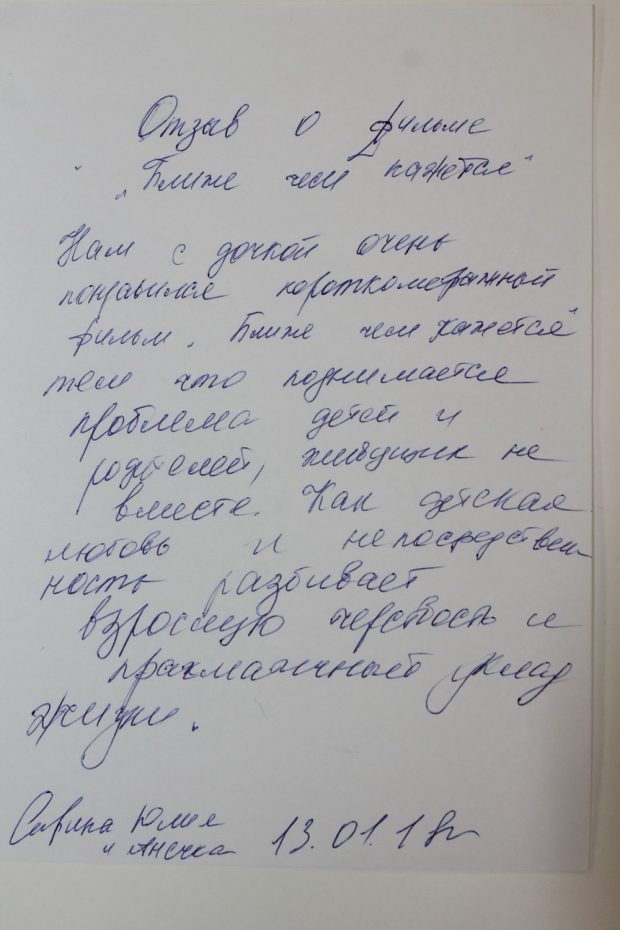 Отзыв о фильме
"Ближе чем кажется"
Нам с дочкой очень
понравился короткометражный
фильм "Ближе чем кажется"
тем что поднимается
проблема детей и
родителей, живущих не
вместе. Как детская
любовь и непосредствен
ность разбивает
взрослую черствость и
прагматичный уклад
жизни.
Савина Юлия
и Анечка 13.01.18г